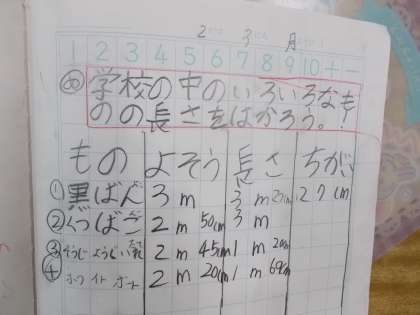 2 3 月
1 2 3 4 5 6 7 8 9 10 + -
め 学校の中のいろいろなも
のの長さをはかろう。!
もの よそう 長さ ちがい
① 黒ばん 3m 3m27cm 27cm
② くつばこ 2m50cm 3m
③ そうじようぐい 2m45cm 1m20cm
④ ホワイトボード 2m20cm 1m69cm